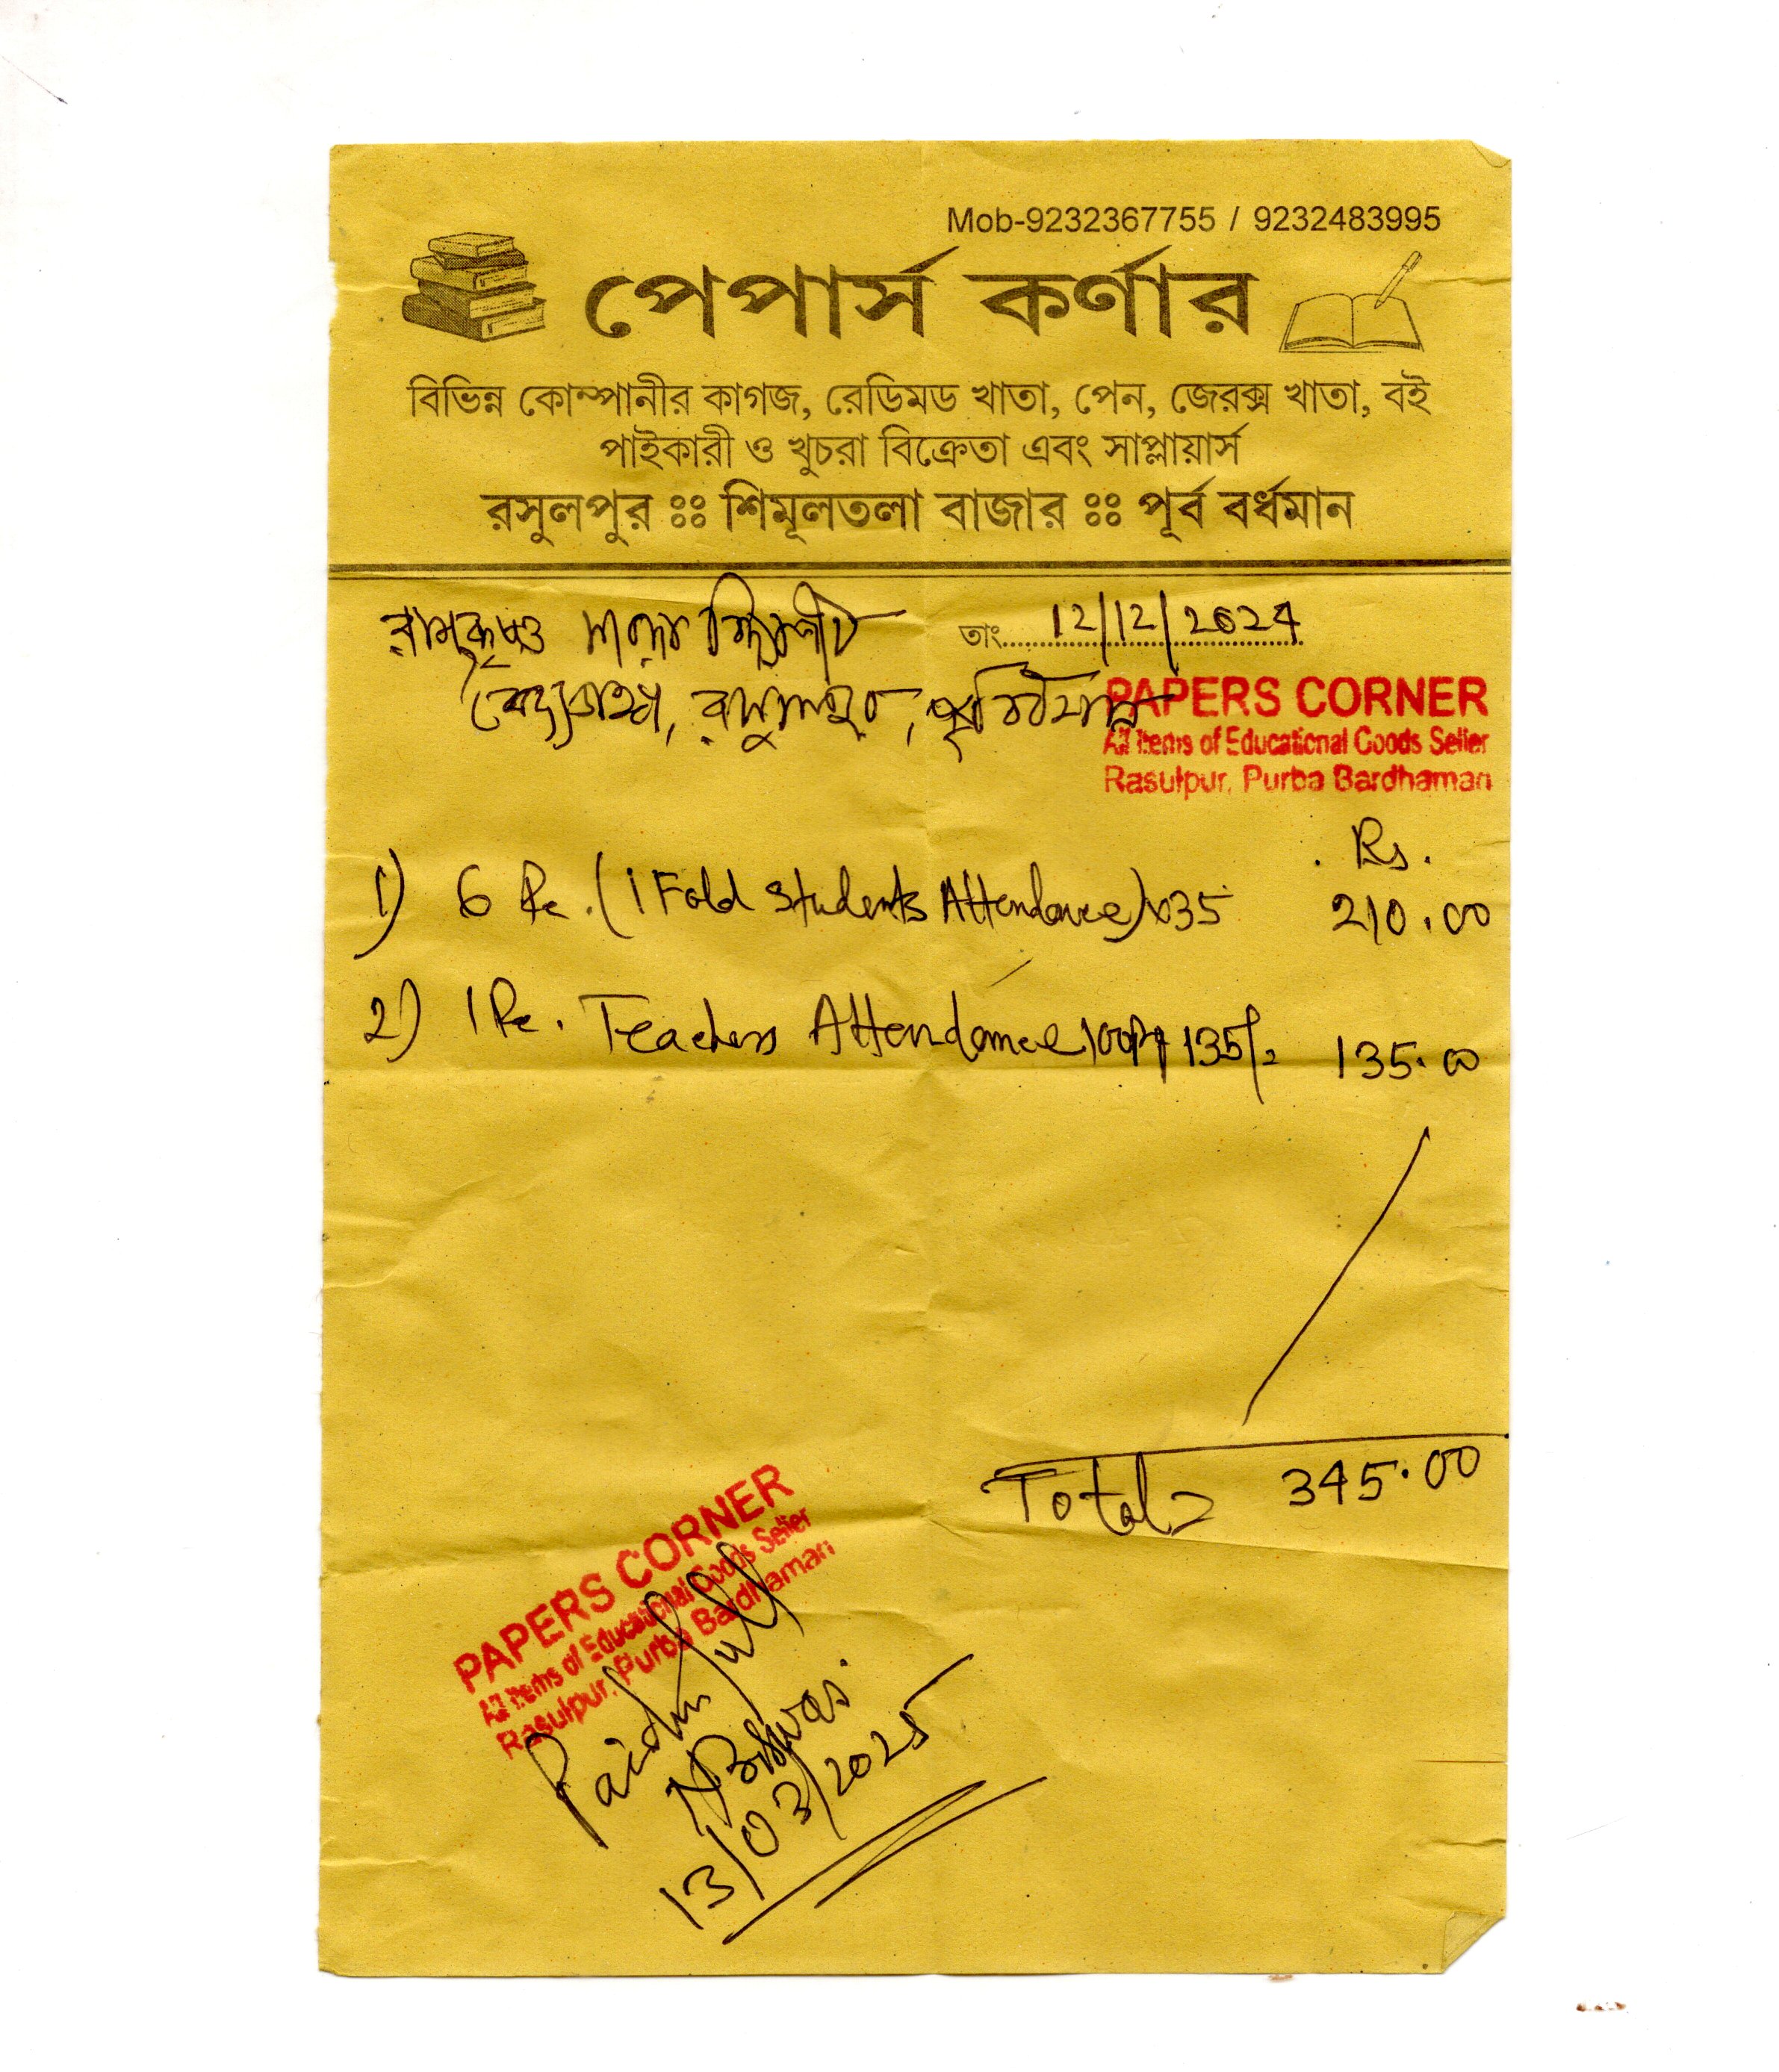 Mob-9232367755 / 9232483995
পেপার্স কর্ণার
বিভিন্ন কোম্পানীর কাগজ, রেডিমড খাতা, পেন, জেরক্স খাতা, বই
পাইকারী ও খুচরা বিক্রেতা এবং সাপ্লায়ার্স
রসুলপুর ঃঃ শিমূলতলা বাজার ঃঃ পূর্ব বর্ধমান
রামকৃষ্ণ সারদা
তাং 12/12/2024
বৈদ্যডাঙ্গা, রসুলপুর, পূর্ব বর্ধমান
PAPERS CORNER
All Items of Educational Goods Seller
Rasulpur, Purba Bardhaman
Rs.
1) 6 Pc. (1 Fold Students Attendance)x35 210.00
2) 1 Pc. Teachers Attendance 135/- 135.00
Total= 345.00
PAPERS CORNER
All Items of Educational Goods Seller
Rasulpur, Purba Bardhaman
Paid in full
Biswas
13/03/2025